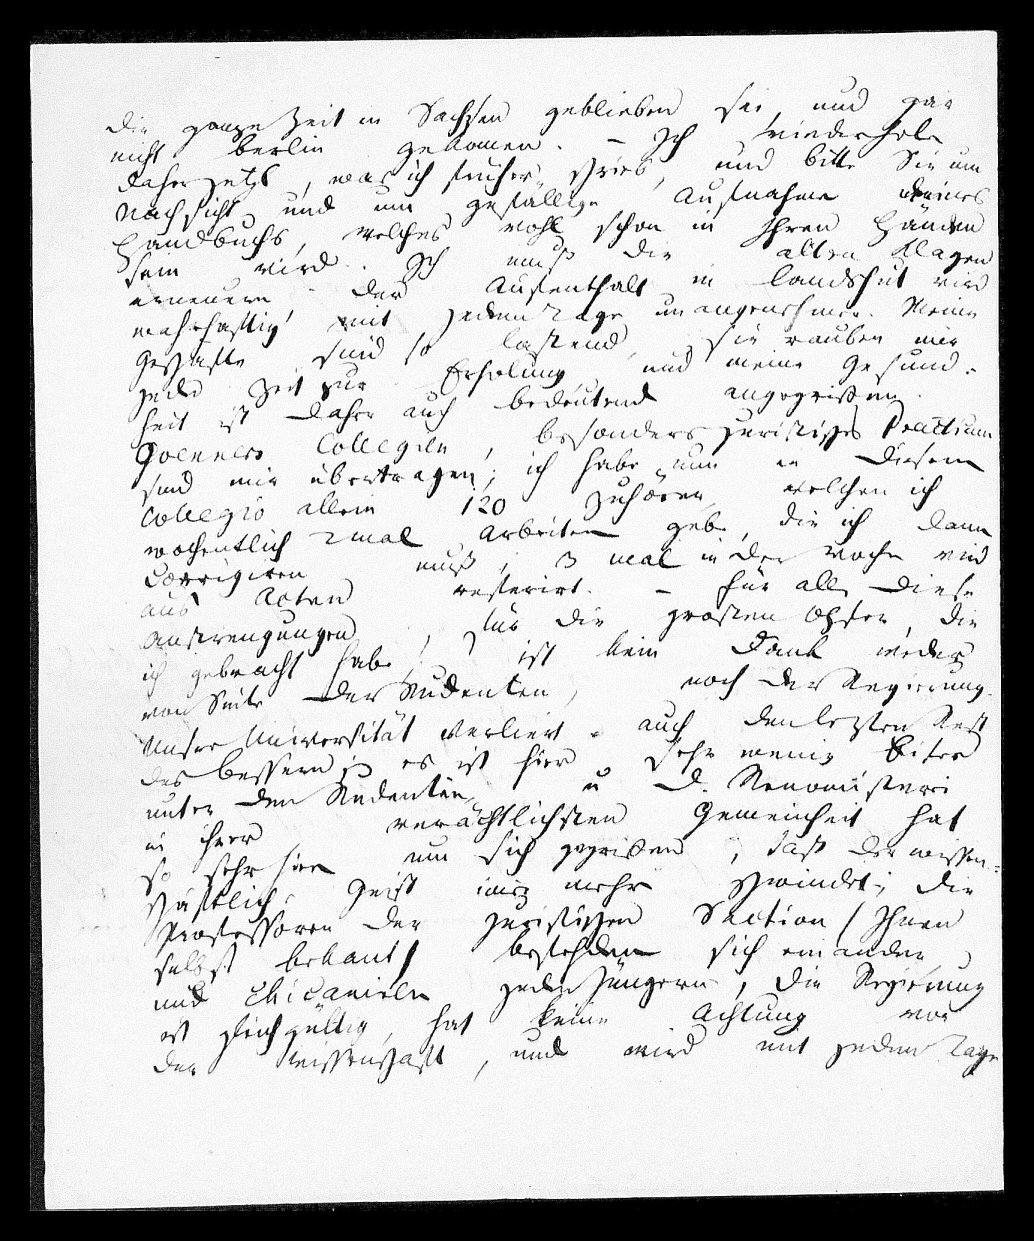 die ganze Zeit in Sachsen geblieben sei, und gar
nicht Berlin gekomen. – Ich wiederhole
daher jetzt, was ich früher schrieb, und bitte Sie um
Nachsicht und um gefällige Aufnahme meines
Handbuchs, welches wohl schon in Ihren Händen
sein wird. Ich muß die alten Klagen
erneuern der Aufenthalt in Landshut wird
wahrhaftig mit jedem Tage unangenehmer. Meine
Geschäfte sind so lastend, sie rauben mir
jede Zeit zur Erholung und meine Gesund-
heit ist daher auch bedeutend angegriffen.
Goenners Collegien, besonders juristisches Practicum
sind mir übertragen; ich habe nun in diesem
Collegio allein 120 Zuhörer, welchen ich
wochentlich 2 mal Arbeiten gebe, die ich dann
Corrigiren muß; 3 mal in der Woche wird
aus Acten referirt. – Für alle diese
Anstrengungen, für die grosten Opfer, die
ich gebracht habe, ist kein Dank weder
von Seite der Studenten, noch der Regierung.
Unsre Universität verliert auch den lezten Rest
des bessern; es ist hier sehr wenig Eifer
unter den Studenten, u d. Renomisterei
in ihrer verächtlichsten Gemeinheit hat
so sehr hier um sich gegriffen, daß der wissen-
schaftliche Geist imer mehr schwindet; die
Professoren der juristischen Section (Ihnen
selbst bekant) befehden sich einander,
und chicaniren jeden jüngern, die Regierung
ist gleichgültig, hat keine Achtung vor
der Wissenschaft, und wird mit jedem Tage